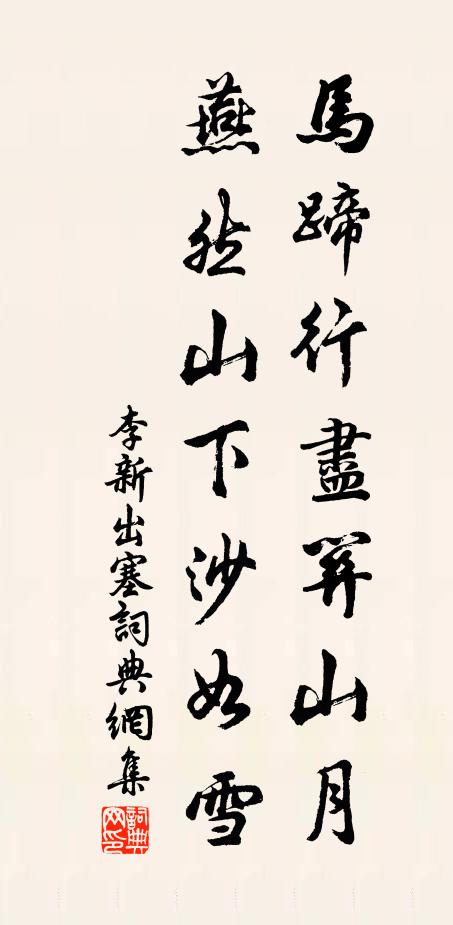 馬蹄行盡關山月
燕然山下沙如雪
李新出塞詞典網集
詞典網印